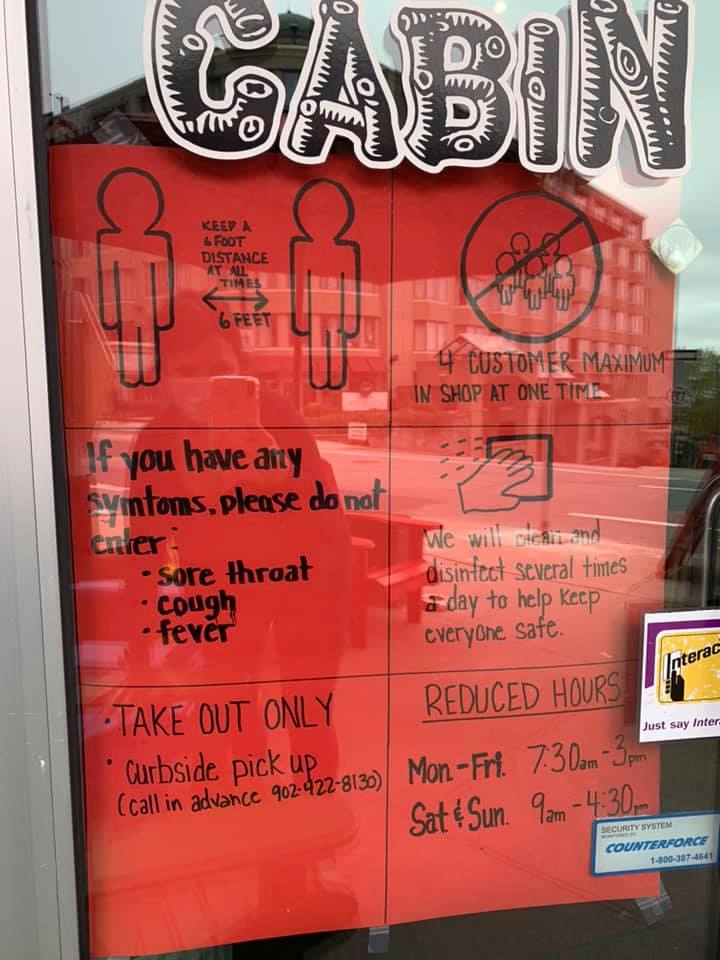 CABIN
KEEP A
6 FOOT
DISTANCE
AT ALL
TIMES
6 FEET
4 CUSTOMER MAXIMUM
IN SHOP AT ONE TIME
If you have any
symtoms, please do not
enter:
• sore throat
• cough
• fever
We will clean and
disinfect several times
a day to help keep
everyone safe.
• TAKE OUT ONLY
• Curbside pick up
(call in advance 902-422-8130)
REDUCED HOURS
Mon-Fri. 7:30am-3pm
Sat & Sun. 9am-4:30pm
Interac
Just say Inter
SECURITY SYSTEM
MONITORED BY
COUNTERFORCE
1-800-387-4641